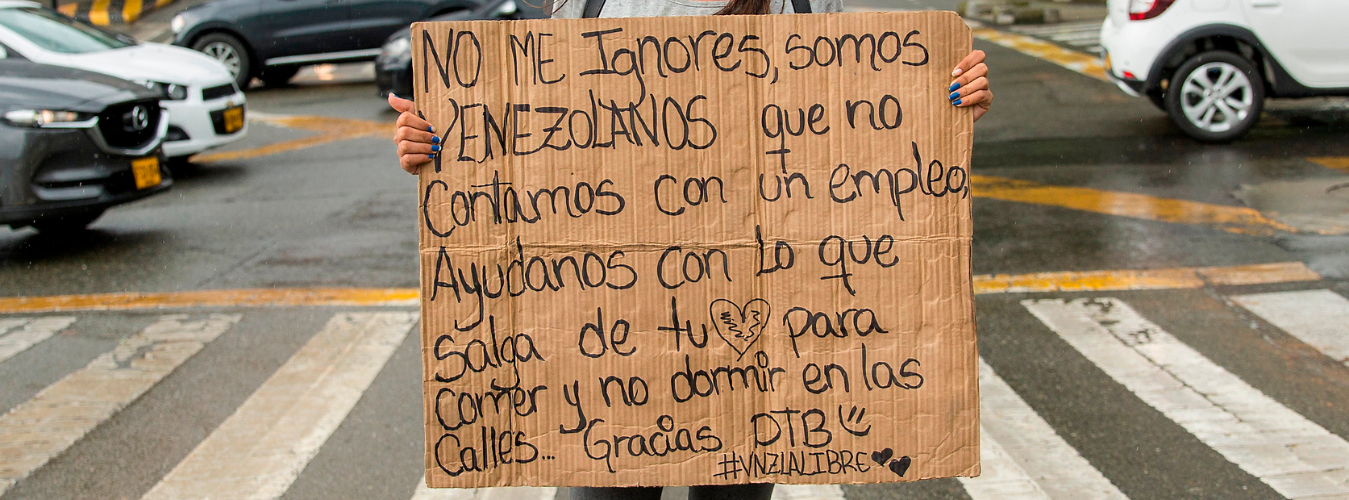 NO ME Ignores, somos
VENEZOLANOS que no
Contamos con un empleo,
Ayudanos con lo que
salga de tu para
comer y no dormir en las
Calles... Gracias DTB
#VNZLALIBRE